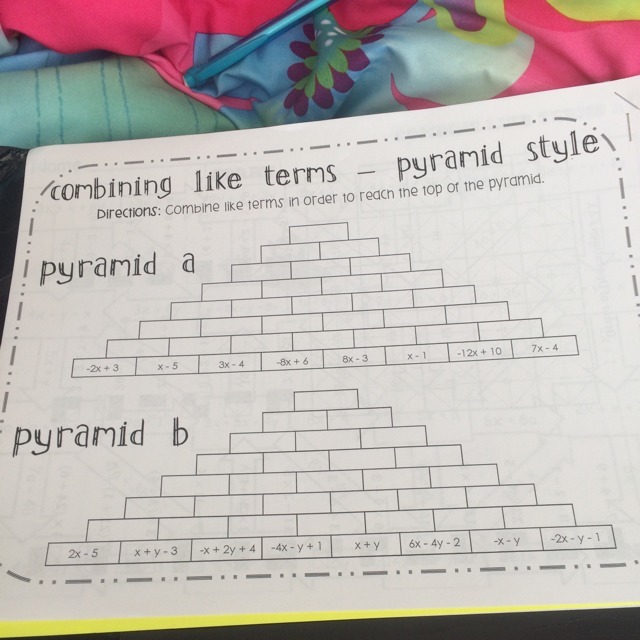 combining like terms – pyramid style
Directions: Combine like terms in order to reach the top of the pyramid.
pyramid a
-2x + 3 x - 5 3x - 4 -8x + 6 8x - 3 x - 1 -12x + 10 7x - 4
pyramid b
2x - 5 x + y - 3 -x + 2y + 4 -4x - y + 1 x + y 6x - 4y - 2 -x - y -2x - y - 1